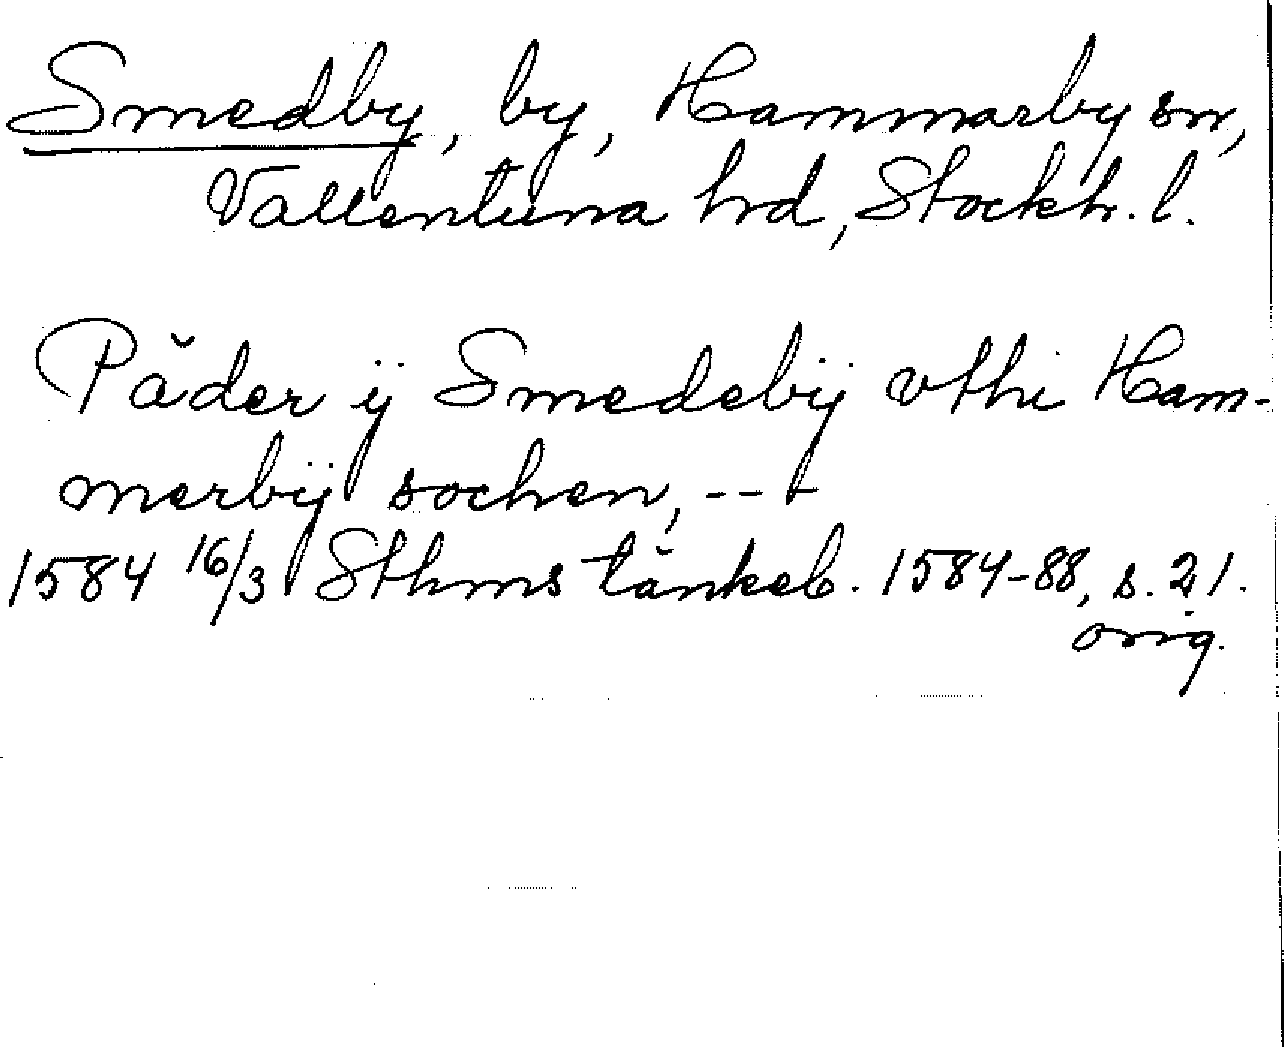 Smedby, by, Hammarby sn,
Vallentuna hrd, Stockh. l.
Päder ij Smedebÿ vthi Ham-
merbÿ sochen, ---
1584 16/3 Sthms tänkeb. 1584-88, s. 21.
orig.